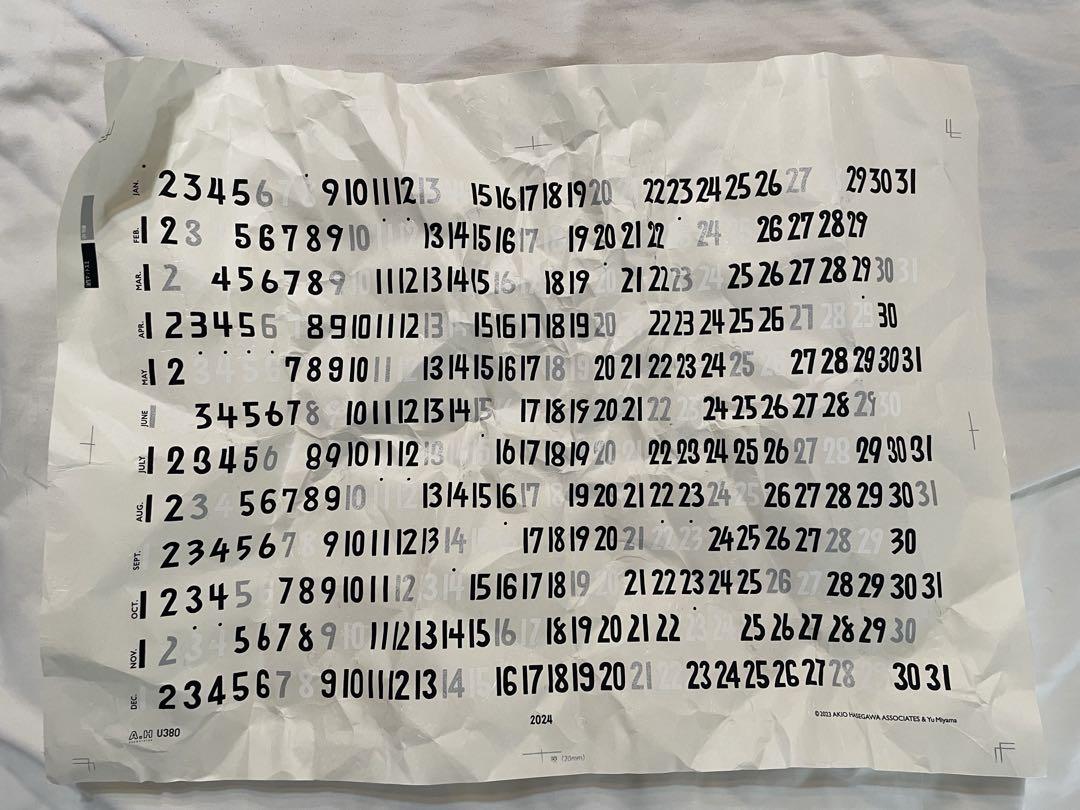 JAN. 2 3 4 5 6 9 10 11 12 13 15 16 17 18 19 20 22 23 24 25 26 27 29 30 31
FEB. 1 2 3 5 6 7 8 9 10 13 14 15 16 17 19 20 21 22 24 26 27 28 29
MAR. 1 2 4 5 6 7 8 9 11 12 13 14 15 16 18 19 21 22 23 24 25 26 27 28 29 30 31
APR. 1 2 3 4 5 6 8 9 10 11 12 13 15 16 17 18 19 20 22 23 24 25 26 27 28 29 30
MAY 1 2 3 4 5 6 7 8 9 10 11 12 13 14 15 16 17 18 19 20 21 22 23 24 25 26 27 28 29 30 31
JUNE 1 3 4 5 6 7 8 9 10 11 12 13 14 15 17 18 19 20 21 22 23 24 25 26 27 28 29 30
JULY 1 2 3 4 5 6 8 9 10 11 12 13 16 17 18 19 20 21 22 23 24 25 26 27 28 29 30 31
AUG. 1 2 3 4 5 6 7 8 9 10 12 13 14 15 16 17 19 20 21 22 23 24 25 26 27 28 29 30 31
SEPT. 2 3 4 5 6 7 8 9 10 11 12 13 14 17 18 19 20 21 22 23 24 25 26 27 28 29 30
OCT. 1 2 3 4 5 7 8 9 10 11 12 13 14 15 16 17 18 19 20 21 22 23 24 25 26 27 28 29 30 31
NOV. 1 2 3 4 5 6 7 8 9 10 11 12 13 14 15 16 17 18 19 20 21 22 23 24 25 26 27 28 29 30
DEC. 2 3 4 5 6 7 8 9 10 11 12 13 14 15 16 17 18 19 20 21 22 23 24 25 26 27 28 29 30 31
2024
©2023 AKIO HASEGAWA ASSOCIATES & Yu Miyama
A.H U380
(20mm)